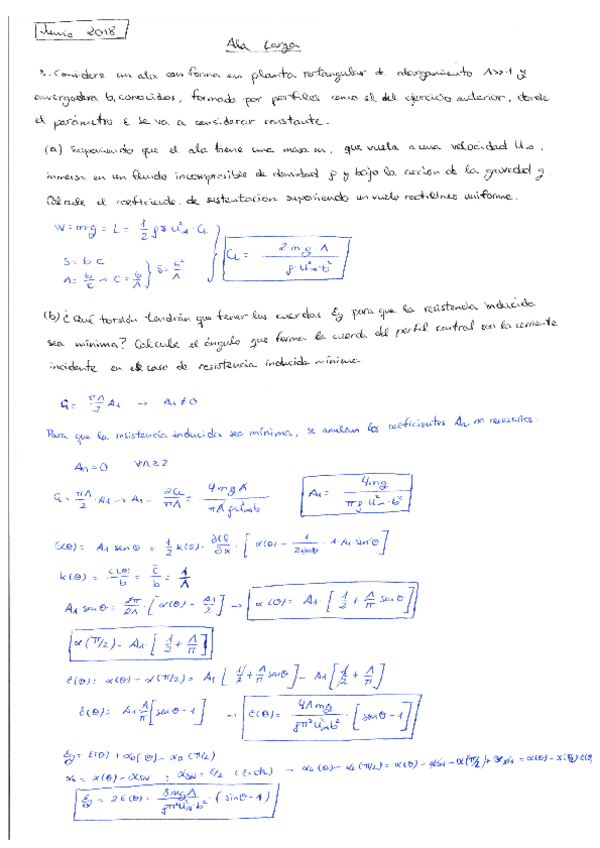 Junio 2018
Ala Larga
2. Considere un ala con forma en planta rectangular de alargamiento Λ>>1 y
envergadura b, conocidos, formada por perfiles como el del ejercicio anterior, donde
el parámetro ε se va a considerar constante.
(a) Suponiendo que el ala tiene una masa m, que vuela a una velocidad U∞,
inmersa en un fluido incompresible de densidad ρ y bajo la acción de la gravedad g.
Calcule el coeficiente de sustentación suponiendo un vuelo rectilíneo uniforme.
W = m·g = L = 1/2 ρ S U∞² · CL
S = b·c
Λ = b/c → c = b/Λ } S = b²/Λ
CL = 2·m·g·Λ / ρ·U∞²·b²
(b) ¿Qué torsión tendrán que tener las cuerdas εg para que la resistencia inducida
sea mínima? Calcule el ángulo que forma la cuerda del perfil central con la corriente
incidente en el caso de resistencia inducida mínima.
CL = πΛ/2 A1 → A1 ≠ 0
Para que la resistencia inducida sea mínima, se anulan los coeficientes An no necesarios.
An = 0 ∀n ≥ 2
CL = πΛ/2 · A1 → A1 = 2CL/πΛ = 4mgΛ/πΛρU∞²b² A1 = 4mg / πρU∞²·b²
G(θ) = A1 senθ = 1/2 k(θ) · ∂Cl/∂α · [α(θ) - 1/2senθ · 1·A1 senθ]
k(θ) = c(θ)/b = c/b = 1/Λ
A1 senθ = 2π/2Λ · [α(θ) - A1/2] → α(θ) = A1 [1/2 + Λ/π senθ]
α(π/2) = A1 · [1/2 + Λ/π]
ε(θ) = α(θ) - α(π/2) = A1 [1/2 + Λ/π senθ] - A1 [1/2 + Λ/π]
ε(θ) = A1 Λ/π [senθ - 1] → ε(θ) = 4Λmg/ρπ²U∞²b² · [senθ - 1]
εg = ε(θ) + α0(θ) - α0(π/2)